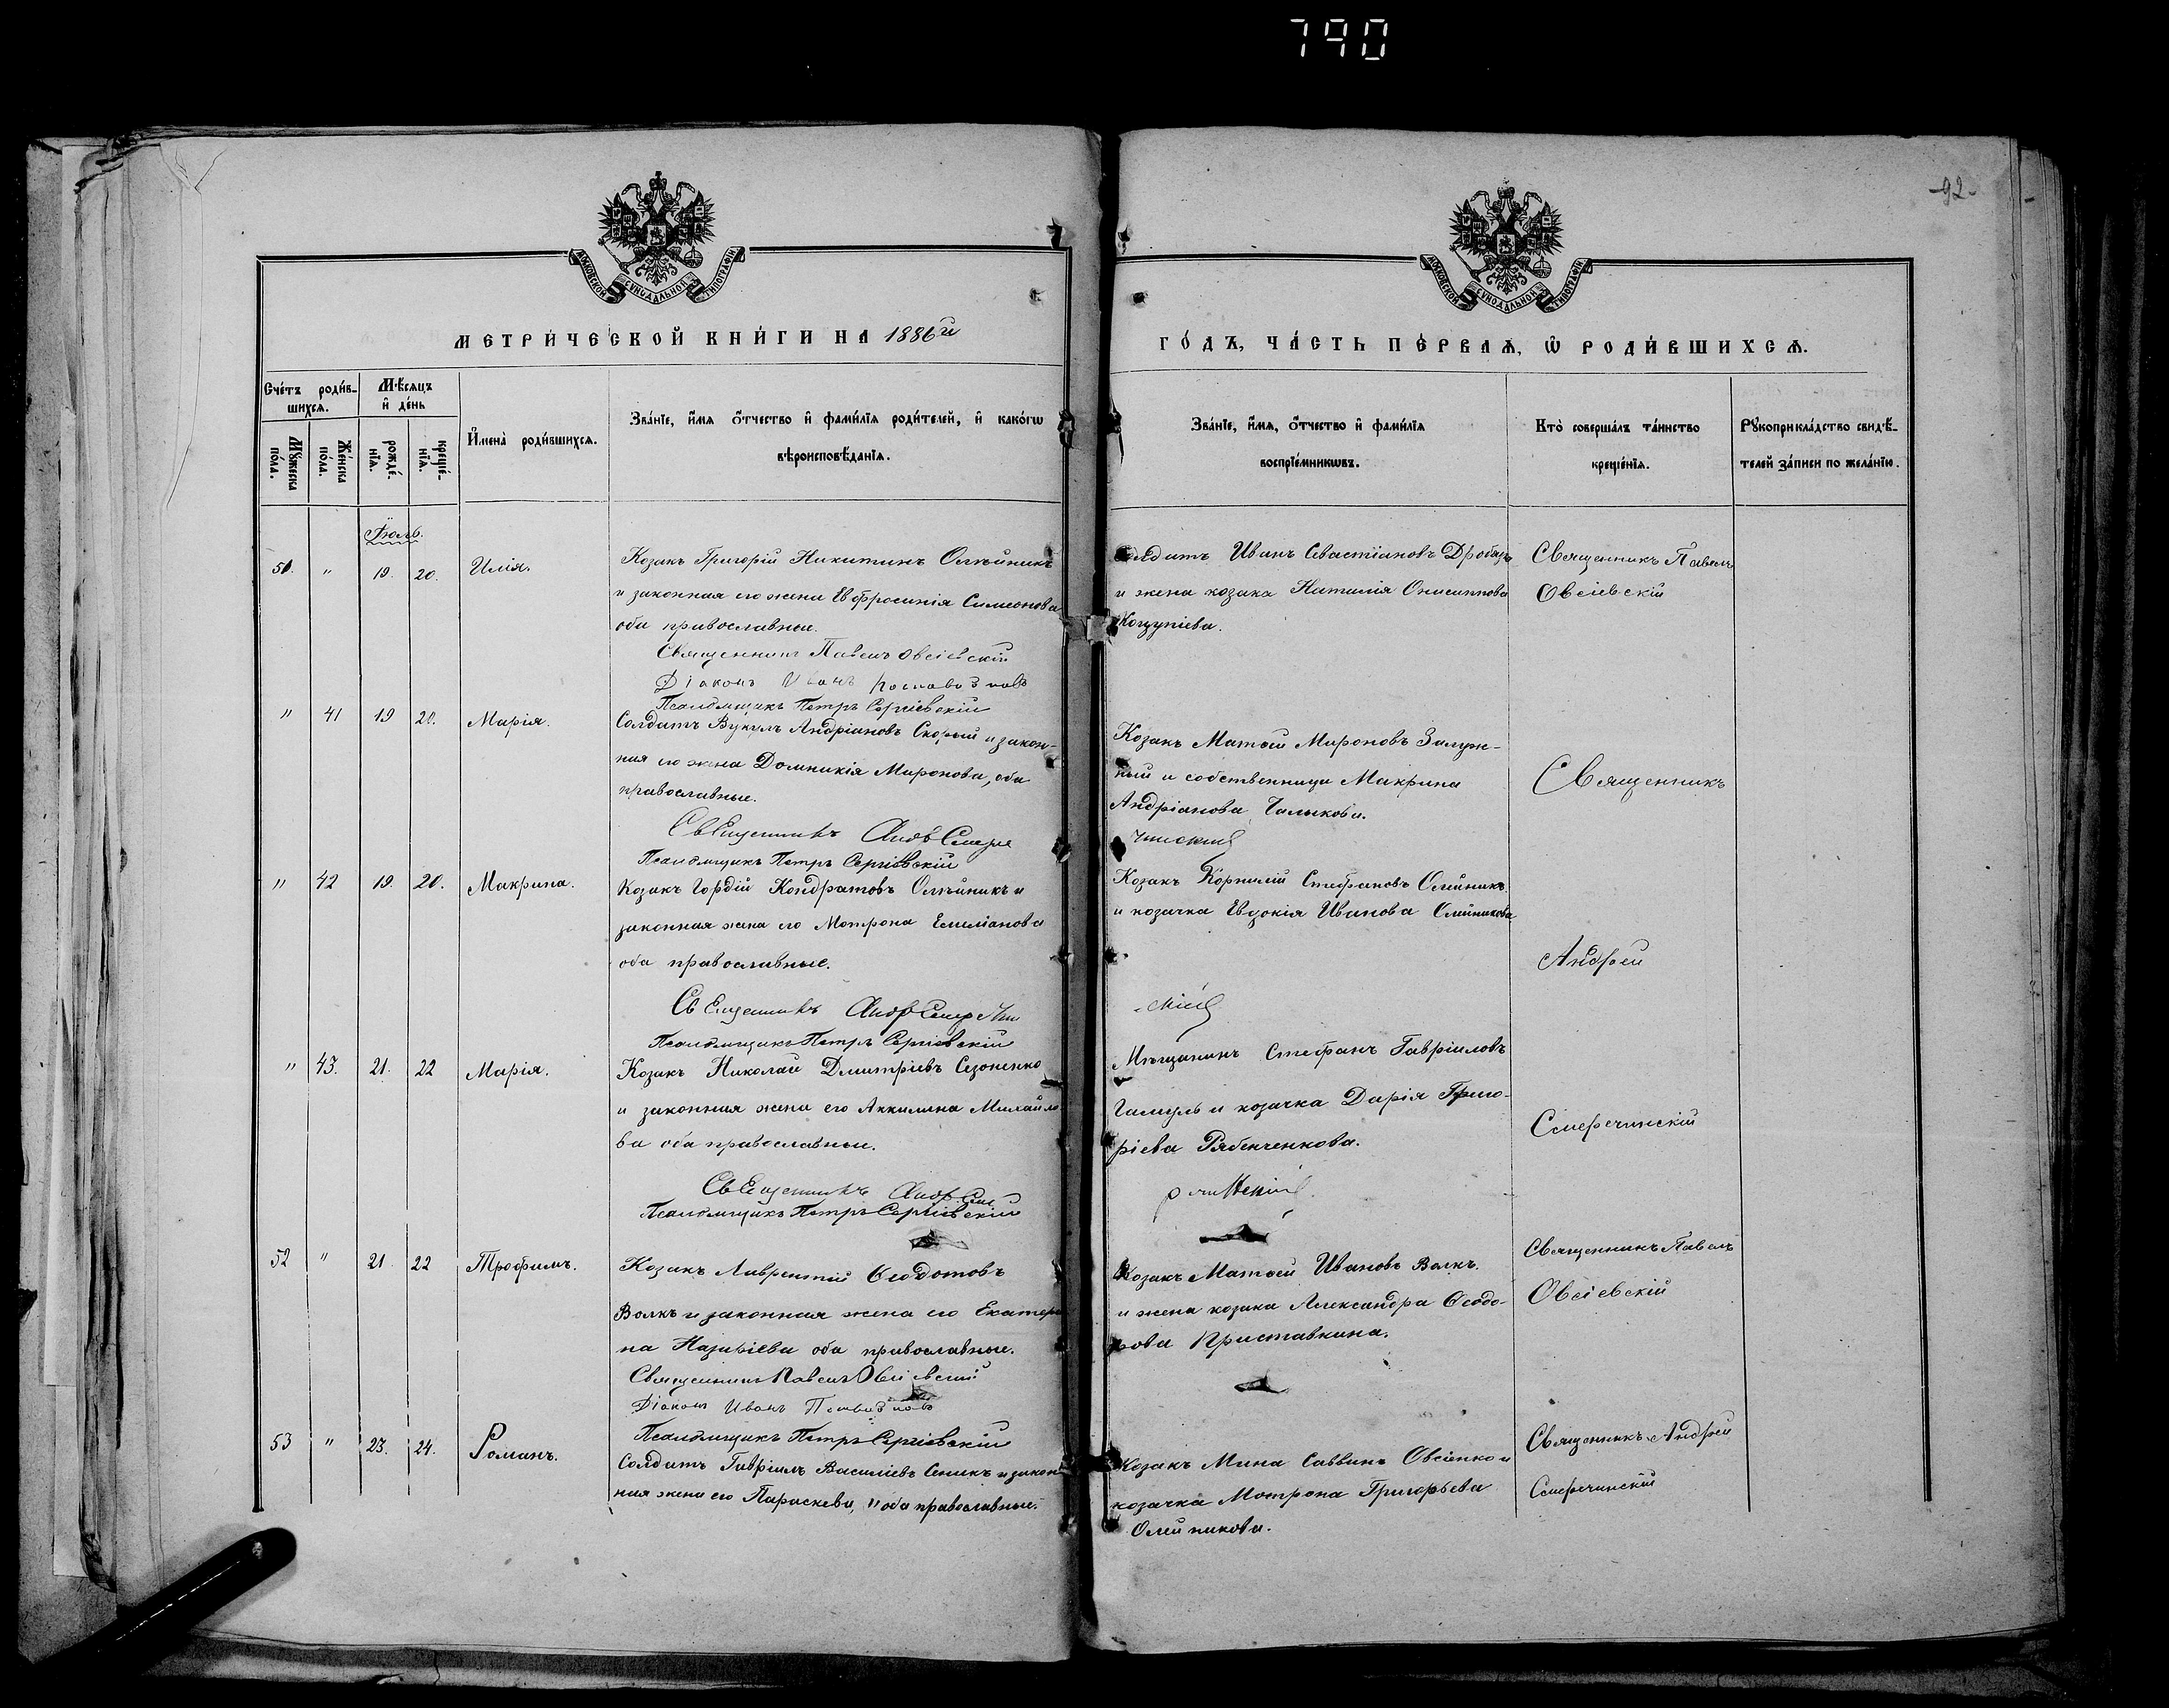 790
-92-
МОСКОВСКОЙ СѴНОДАЛЬНОЙ ТИПОГРАФІИ
МОСКОВСКОЙ СѴНОДАЛЬНОЙ ТИПОГРАФІИ
МЕТРИ́ЧЕСКОЙ КНИ́ГИ НА 1886й
ГО́ДЪ, ЧА́СТЬ ПЕ́РВАѦ, Ѡ҆ РОДИ́ВШИХСѦ.
Сче́тъ роди́в-
шихсѧ.
Мꙋ́жеска по́ла.
Же́нска по́ла.
Мѣ́сѧцъ и҆ де́нь
рожде́-нїѧ.
креще́-нїѧ.
И҆мена̀ роди́вшихсѧ.
Зва́нїе, и҆́мѧ о҆́тчество и҆ фами́лїѧ роди́телей, и҆ како́гѡ
вѣроисповѣ́данїѧ.
Зва́нїе, и҆́мѧ, о҆́тчество и҆ фами́лїѧ
воспрїе́мникѡвъ.
Кто̀ соверша́лъ та́инство
креще́нїѧ.
Рꙋкоприкла́дство свидѣ́-
телей за́писи по жела́нїю.
Іюль.
51. " 19. 20. Илія.
Козакъ Григорій Никитинъ Олѣйникъ
и законная его жена Евфросинія Симеонова
оба православные.
Священникъ Павелъ Овсіевскій
Діаконъ Иванъ
Псаломщикъ Петръ Сергіевскій
Солдатъ Иванъ Севастіановъ Дробязъ
и жена козака Наталія Онисиппова
Когцупіева.
Священникъ Павелъ
Овсіевскій
" 41 19 20. Марія.
Солдатъ Вукулъ Андріановъ Скорый и закон-
ная его жена Домникія Миронова, оба
православные.
Священникъ Андр Смере
Псаломщикъ Петръ Сергіевскій
Козакъ Матѳей Мироновъ Залуж-
ный и собственница Макрина
Андріанова Чалыкова.
чинскій
Священникъ
" 42 19. 20. Макрина.
Козакъ Гордій Кондратовъ Олѣйникъ и
законная жена его Мотрона Емиліанова
оба православные.
Священникъ Андр Смеречин
Псаломщикъ Петръ Сергіевскій
Козакъ Корнилій Стефановъ Олейникъ
и козачка Евдокія Иванова Олейникова
скій
Андрей
" 43. 21. 22 Марія.
Козакъ Николай Дмитріевъ Сезоненко
и законная жена его Акилина Михайло
ва оба православные.
Священникъ Андр. Сме
Псаломщикъ Петръ Сергіевскій
Мѣщанинъ Стефанъ Гавріиловъ
Галуль и козачка Дарія Григо-
ріева Рябенченкова.
речинскій
Смеречинскій
52 " 21. 22 Трофимъ.
Козакъ Лаврентій Ѳеодотовъ
Волкъ и законная жена его Екатери
на Назаріева оба православные.
Священникъ Павелъ Овсіевскій
Діаконъ Иванъ
Псаломщикъ Петръ Сергіевскій
Козакъ Матѳей Ивановъ Волкъ.
и жена козака Александра Ѳеодо-
рова Приставкина.
Священникъ Павелъ
Овсіевскій
53 " 23. 24. Романъ.
Солдатъ Гавріилъ Василіевъ Сеникъ и закон
ная жена его Параскева, " оба православные.
Козакъ Мина Саввинъ Овсіенко и
козачка Мотрона Григорьева
Олейникова.
Священникъ Андрей
Смеречинскій